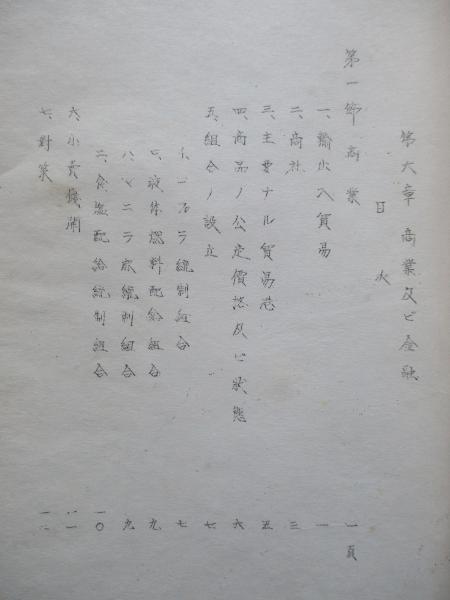 第六章 商業及ビ金融
目次
第一節 商業 一頁
一、輸出入貿易 一
二、商社 三
三、主要ナル貿易港 五
四、商品ノ公定價格及ビ狀態 六
五、組合ノ設立 七
イ、コプラ統制組合 七
ロ、液体燃料配給組合 九
ハ、マニラ麻統制組合 九
二、食塩配給統制組合 一〇
六、小賣機関 一一
七、對策 一二